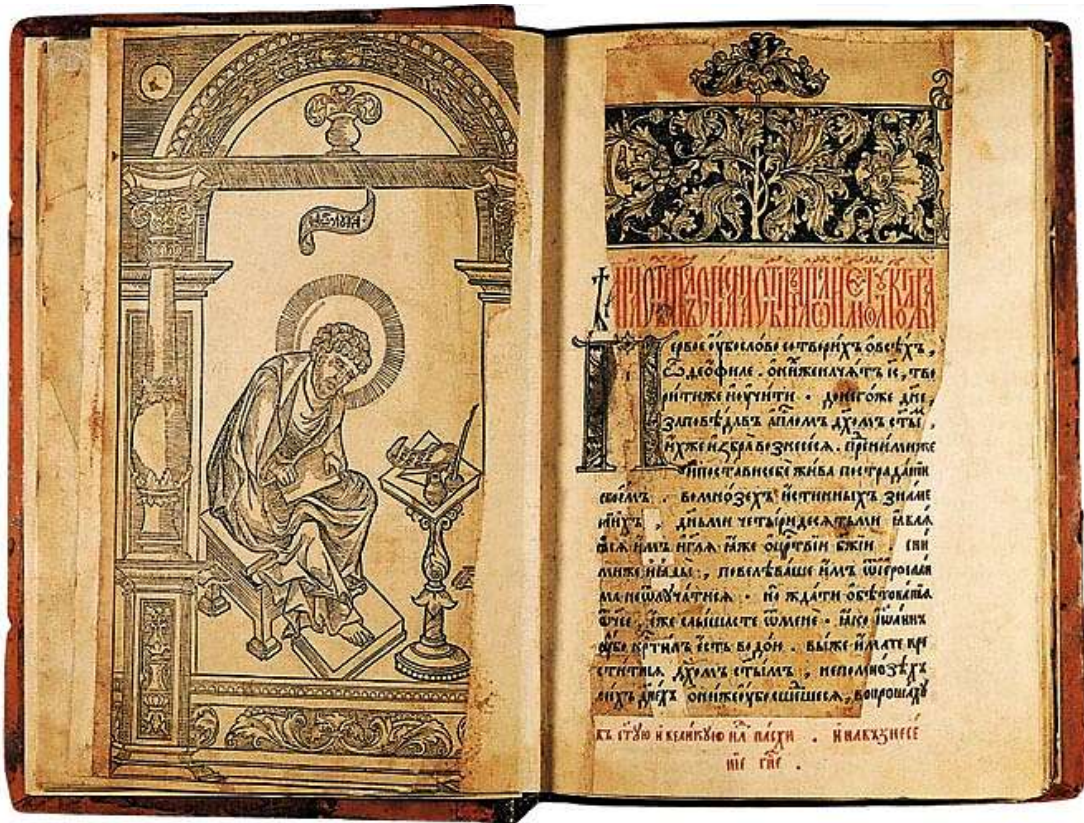 Первое ᲂу҆́бо сло́во сотвори́хъ ѻ҆ всѣ́хъ,
ѽ, ѳео́филе. ѻ҆ ни́хже нача́тъ і҆с, тво
ри́тиже и҆ ᲂу҆чи́ти. до него́же дне,
заповѣ́давъ а҆пⷭ҇ломъ дх҃омъ ст҃ы́,
и҆́хже и҆збра̀ вознесе́сѧ. пре́д ни́миже
и҆ поста́ви себѐ жи́ва по страда́нїи
свое́мъ. во мно́зехъ и҆́стинныхъ зна́ме
нїихъ, дньмѝ четы́ридесѧтьми ꙗ҆влѧ́ѧ
сѧ и҆̀мъ и҆ гл҃ѧ ꙗ҆́же ѻ҆ црⷭ҇твїи бж҃їи. с ни́
миже и҆ ꙗ҆ды́, повелѣва́ше и҆̀мъ ѿ і҆еросали
ма не ѿлꙋча́тисѧ. но жда́ти ѻ҆бѣтова́нїѧ
ѿч҃ее, е҆́же слы́шасте ѿ менѐ. ꙗ҆́ко і҆ѡ҆а́ннъ
ᲂу҆́бо крⷭ҇ти́лъ є҆́сть водо́ю. вы́же и҆́мате кре
сти́тисѧ дх҃омъ ст҃ы́мъ, не по мно́зѣхъ
си́хъ дне́хъ ѻ҆ни́же ᲂу҆́бо сше́дшесѧ, вопроша́хꙋ
въ ст҃ꙋ́ю и҆ вели́кꙋю нлⷧ҇ю па́схи. и҆ на възнесе́
нїе гнⷭ҇е.